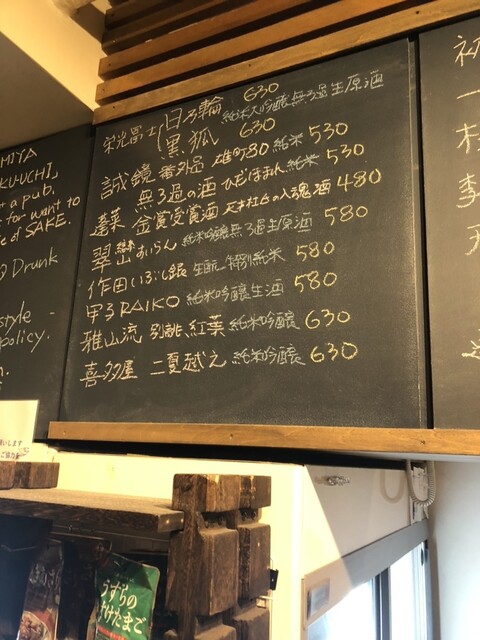 MIYA
KU-UCHI」
t a pub.
s for want to
le of SAKE.
Drunk
style -
policy.
栄光冨士 日乃輪 630 純米大吟醸無ろ過生原酒
黒狐 630
誠鏡 番外品 雄町80 純米 530
蓬莱 無ろ過の酒 ひだほまれ 純米 530
金賞受賞酒 天才杜氏の入魂酒 480
翠 すいらん 純米吟醸無ろ過生原酒 580
作田 いぶし銀 生酛 特別純米 580
甲子 RAIKO 純米吟醸生酒 580
雅山流 別誂 紅葉 純米吟醸 630
喜多屋 二夏越え 純米吟醸 630
初
一
杜
李
うずらの
味付けたまご